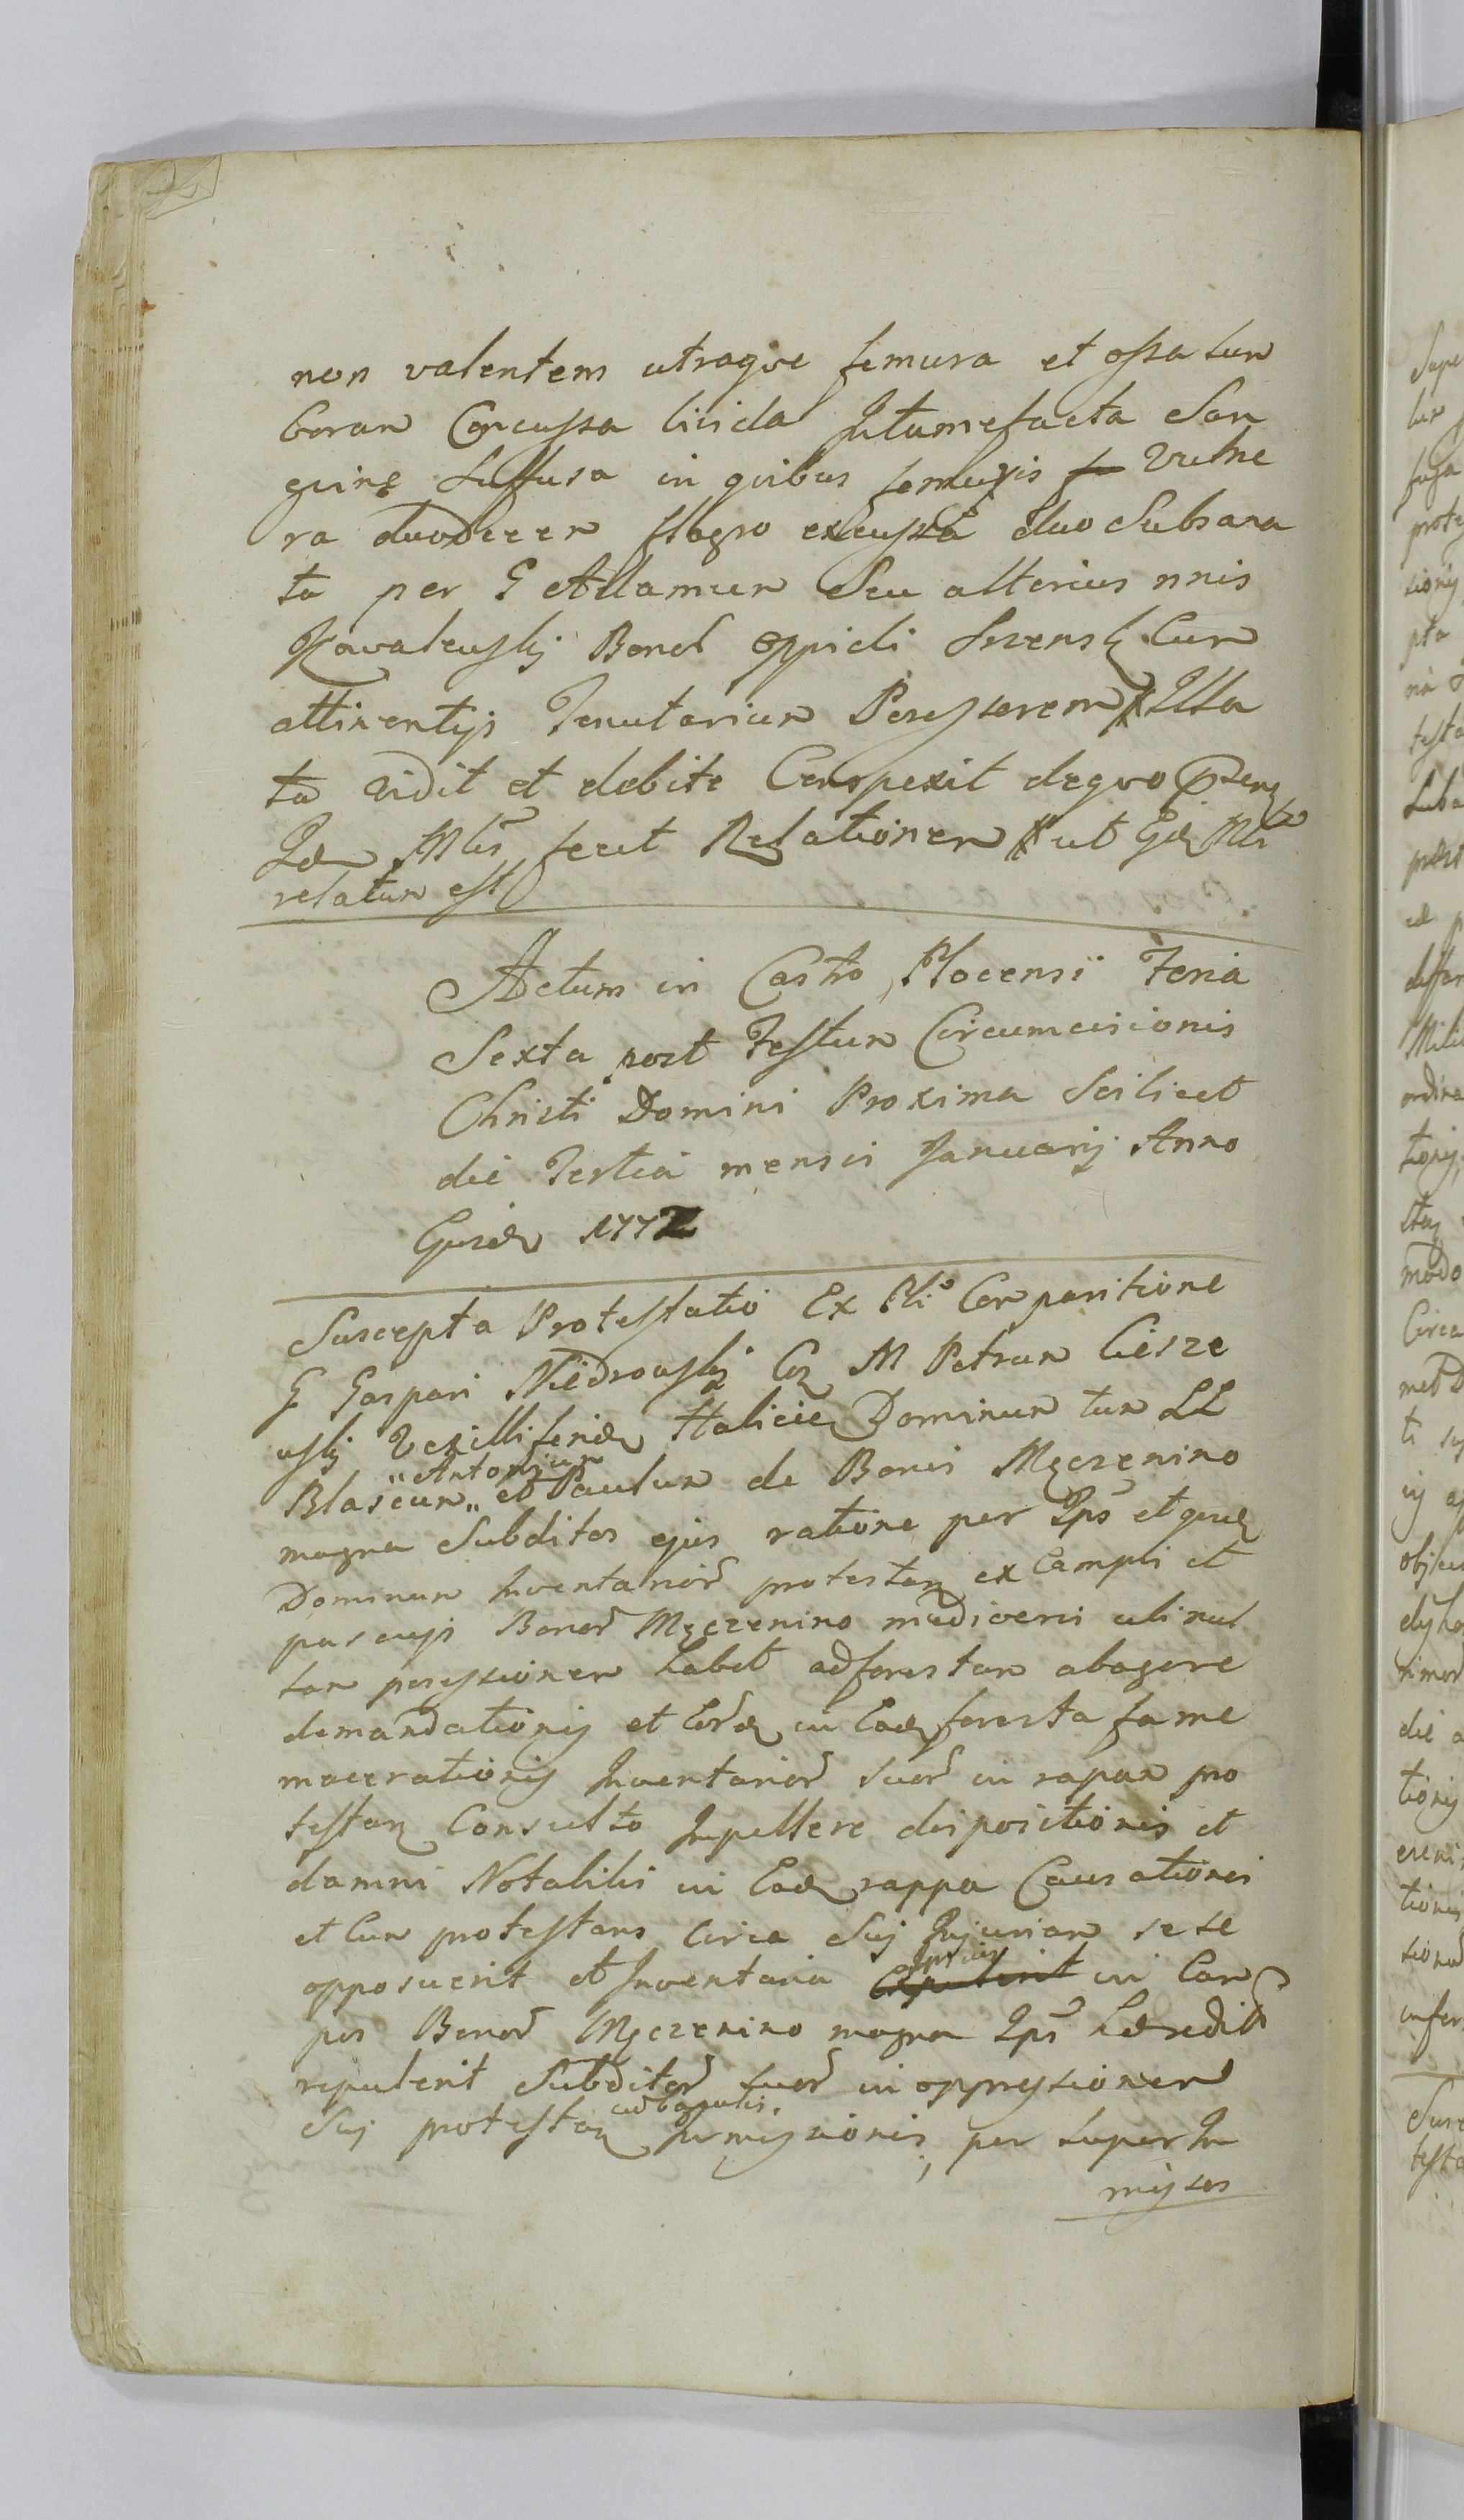 non valentem utraque femura et ossa lum
borum Concussa livida Intumefacta San
guine Suffusa in quibus femuris Vulne
ra duodecem flagro excussa duo Subsana
ta per G Adamum Seu alterius nnis
Kowalewskj Bonor oppidi Cum
attinentijs Tenutarium Possessorem Illa
ta vidit et debite Conspexit de quo
Idem Mlis fecit Relationem ut Ejdem Mlr
relatum est
Actum in Castro Plocensi Feria
Sexta post Festum Circumcisionis
Christi Domini Proxima Scilicet
die Tertia mensis Januarij Anno
Ejusdem 1772
Suscepta Protestatio Ex Comparitione
G Gaspari Niedrowskj Coz M Petrum Ciesze
wskj Vexilliferidem Halicien Dominum tum LL
Blasium „Antonium„ et Paulum de Bonis Męczenino
magna Subditos ejus ratione per Ips et
Dominum Inventarior protestan ex Campis et
pascujs Bonor Męczenino ubi nul
lam possessionem habet ad forestam abagere
demandationis et in Eadem foresta fame
macerationis Inventarior suor in rapam pro
testan Consulto Impellere dispositionis et
damni Notabilis in Eadem rappa Causationis
et Cum protestans circa Suj Injuriam sese
opposuerit et Inventaria in Cam
pos Bonor Męczenino magna Ips hæredit
repulerit Subditor suor in oppressionem
Suj protestan cum bagulis Inmissionis, per super In
missos